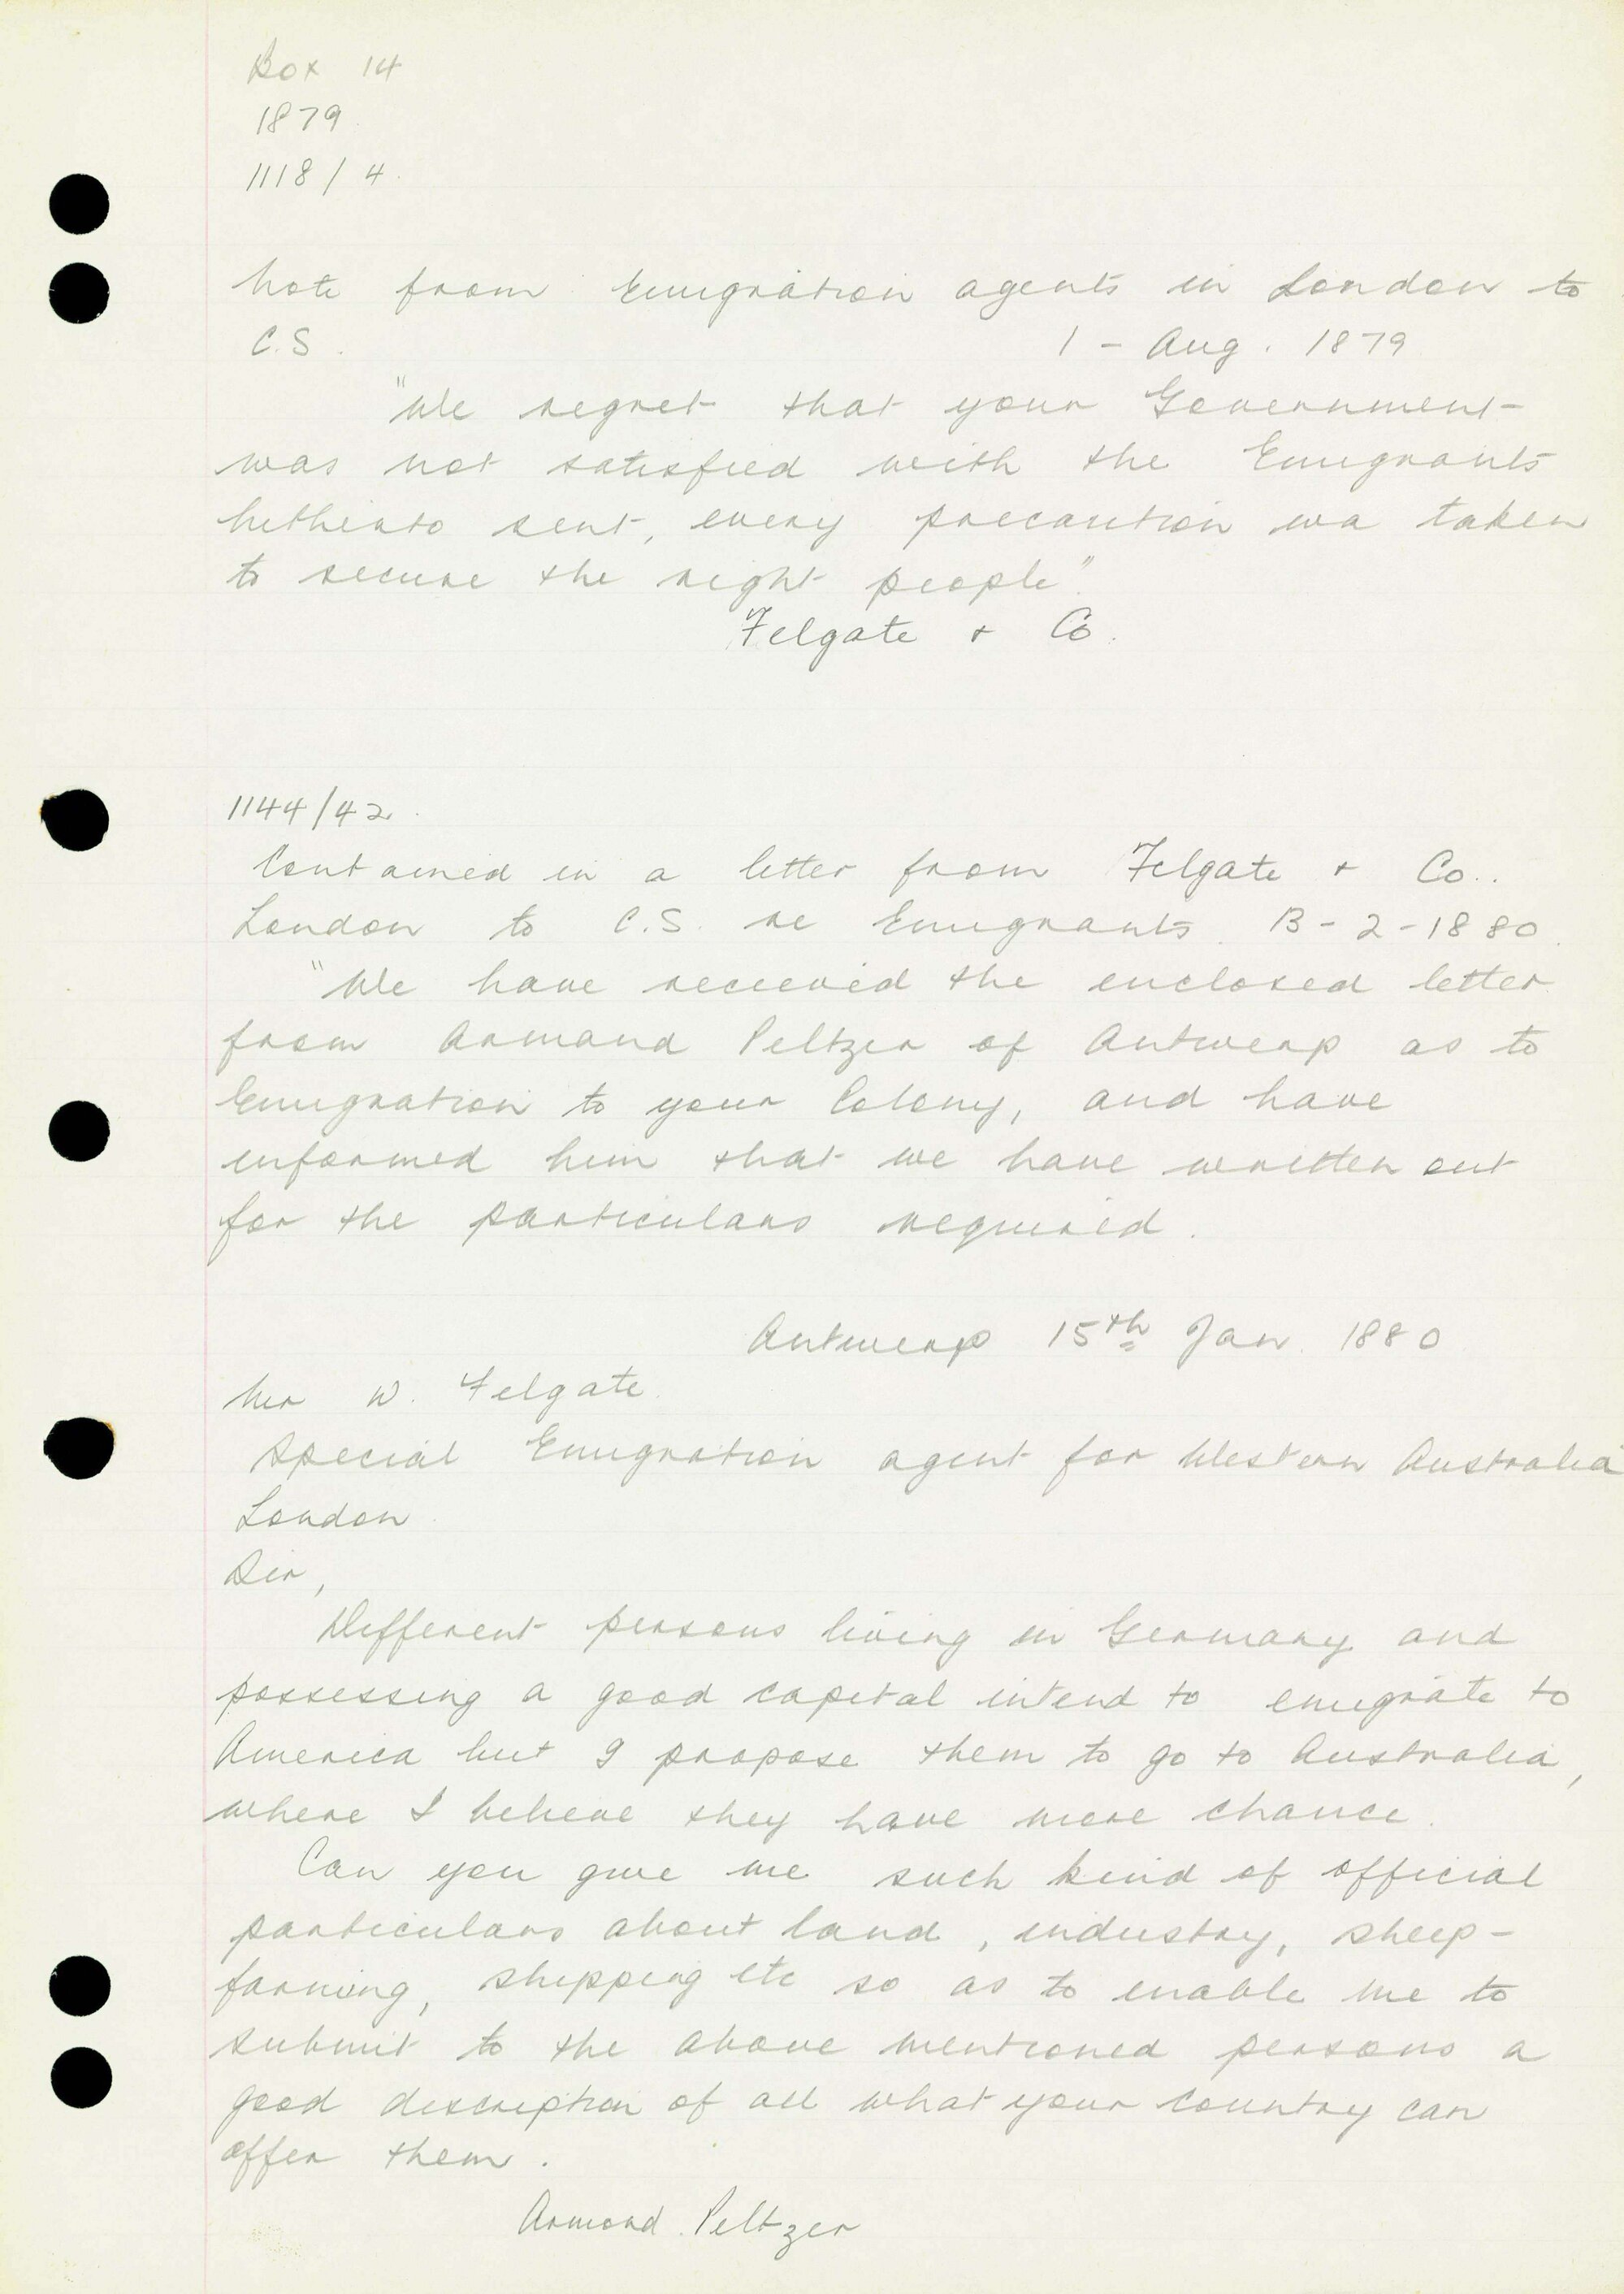 Box 14
1879
1118/4.
Note from Emigration agents in London to
C.S. 1 - Aug. 1879
"We regret that your Government
was not satisfied with the Emigrants
hitherto sent, every precaution wa taken
to secure the right people".
Felgate + Co.
1144/42.
Contained in a letter from Felgate + Co..
London to C.S. re Emigrants. 13-2-1880.
"We have recieved the enclosed letter
from Armand Peltzer of Antwerp as to
Emigration to your Colony, and have
informed him that we have written out
for the particulars required.
Antwerp 15th Jan. 1880
Mr W. Felgate.
Special Emigration agent for Western Australia
London
Sir,
Different persons living in Germany and
possessing a good capital intend to emigrate to
America but I propose them to go to Australia,
where I believe they have more chance.
Can you give me such kind of official
particulars about land, industry, sheep-
farming, shipping etc so as to enable me to
submit to the above mentioned persons a
good description of all what your country can
offer them.
Armand Peltzer